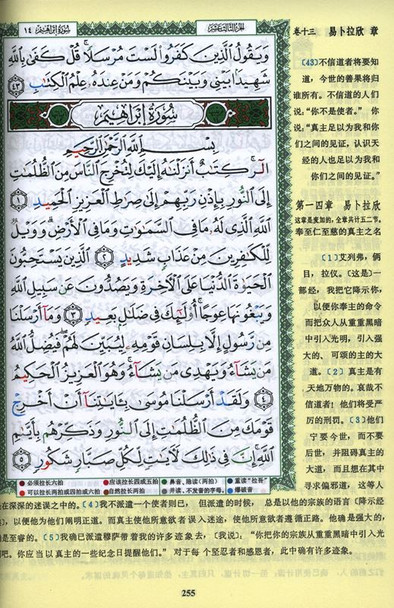 الجزء الثالث عشر
سورة إبراهيم ١٤
وَيَقُولُ الَّذِينَ كَفَرُوا لَسْتَ مُرْسَلًا ۚ قُلْ كَفَىٰ بِاللَّهِ
شَهِيدًا بَيْنِي وَبَيْنَكُمْ وَمَنْ عِندَهُ عِلْمُ الْكِتَابِ ٤٣
سُورَةُ إِبْرَاهِيمَ
بِسْمِ اللَّهِ الرَّحْمَٰنِ الرَّحِيمِ
الٓر ۚ كِتَابٌ أَنزَلْنَاهُ إِلَيْكَ لِتُخْرِجَ النَّاسَ مِنَ الظُّلُمَاتِ
إِلَى النُّورِ بِإِذْنِ رَبِّهِمْ إِلَىٰ صِرَاطِ الْعَزِيزِ الْحَمِيدِ ١
اللَّهِ الَّذِي لَهُ مَا فِي السَّمَاوَاتِ وَمَا فِي الْأَرْضِ ۗ وَوَيْلٌ
لِّلْكَافِرِينَ مِنْ عَذَابٍ شَدِيدٍ ٢ الَّذِينَ يَسْتَحِبُّونَ
الْحَيَاةَ الدُّنْيَا عَلَى الْآخِرَةِ وَيَصُدُّونَ عَن سَبِيلِ اللَّهِ
وَيَبْغُونَهَا عِوَجًا ۚ أُولَٰئِكَ فِي ضَلَالٍ بَعِيدٍ ٣ وَمَا أَرْسَلْنَا
مِن رَّسُولٍ إِلَّا بِلِسَانِ قَوْمِهِ لِيُبَيِّنَ لَهُمْ ۖ فَيُضِلُّ اللَّهُ
مَن يَشَاءُ وَيَهْدِي مَن يَشَاءُ ۚ وَهُوَ الْعَزِيزُ الْحَكِيمُ
٤ وَلَقَدْ أَرْسَلْنَا مُوسَىٰ بِآيَاتِنَا أَنْ أَخْرِجْ
قَوْمَكَ مِنَ الظُّلُمَاتِ إِلَى النُّورِ وَذَكِّرْهُم بِأَيَّامِ
اللَّهِ ۚ إِنَّ فِي ذَٰلِكَ لَآيَاتٍ لِّكُلِّ صَبَّارٍ شَكُورٍ ٥
卷十三 易卜拉欣 章
(43)不信道者将要知
道，今世的善果将归
谁所有。不信的人们
说：“你不是使者。” 你
说：“真主足以为我和你
们之间的见证，认识天
经的人也足以为我和
你们之间的见证。”
第一四章 易卜拉欣
这章是麦加的，全章共计五二节。
奉至仁至慈的真主之名
(1)艾列弗，俩
目，拉仪。(这是)一
部经，我把它降示你，
以便你奉主的命令
而把众人从重重黑暗
中引入光明，引入强
大的、 可颂的主的大
道。(2) 真主是有
天地万物的。哀哉不
信道者！他们将受严
厉的刑罚。(3)他们
宁要今世，而不要
后世；并阻碍真主的
大道，而且想在其中
寻求偏邪道，这等人
在深深的迷误之中的。(4)我不派遣一个使者则已， 但派遣的时候， 总是以他的宗族的语言(降示经
)，以便他为他们阐明正道。而真主使他所意欲者误入迷途，使他所意欲者遵循正路。他确是强大的，
是至睿的。(5)我确已派遣穆萨带着我的许多迹象去，(我说)，“你把你的宗族从重重黑暗中引入光
明吧。你应当以真主的一些纪念日提醒他们。” 对于每个坚忍者和感恩者，此中确有许多迹象。
必须拉长六拍
应该拉长四或五拍
鼻音，隐读(两拍)
重读“拉长”
可以拉长两拍或四拍或六拍
自然拉长两拍
并读、不发音的字母。
爆破音
255